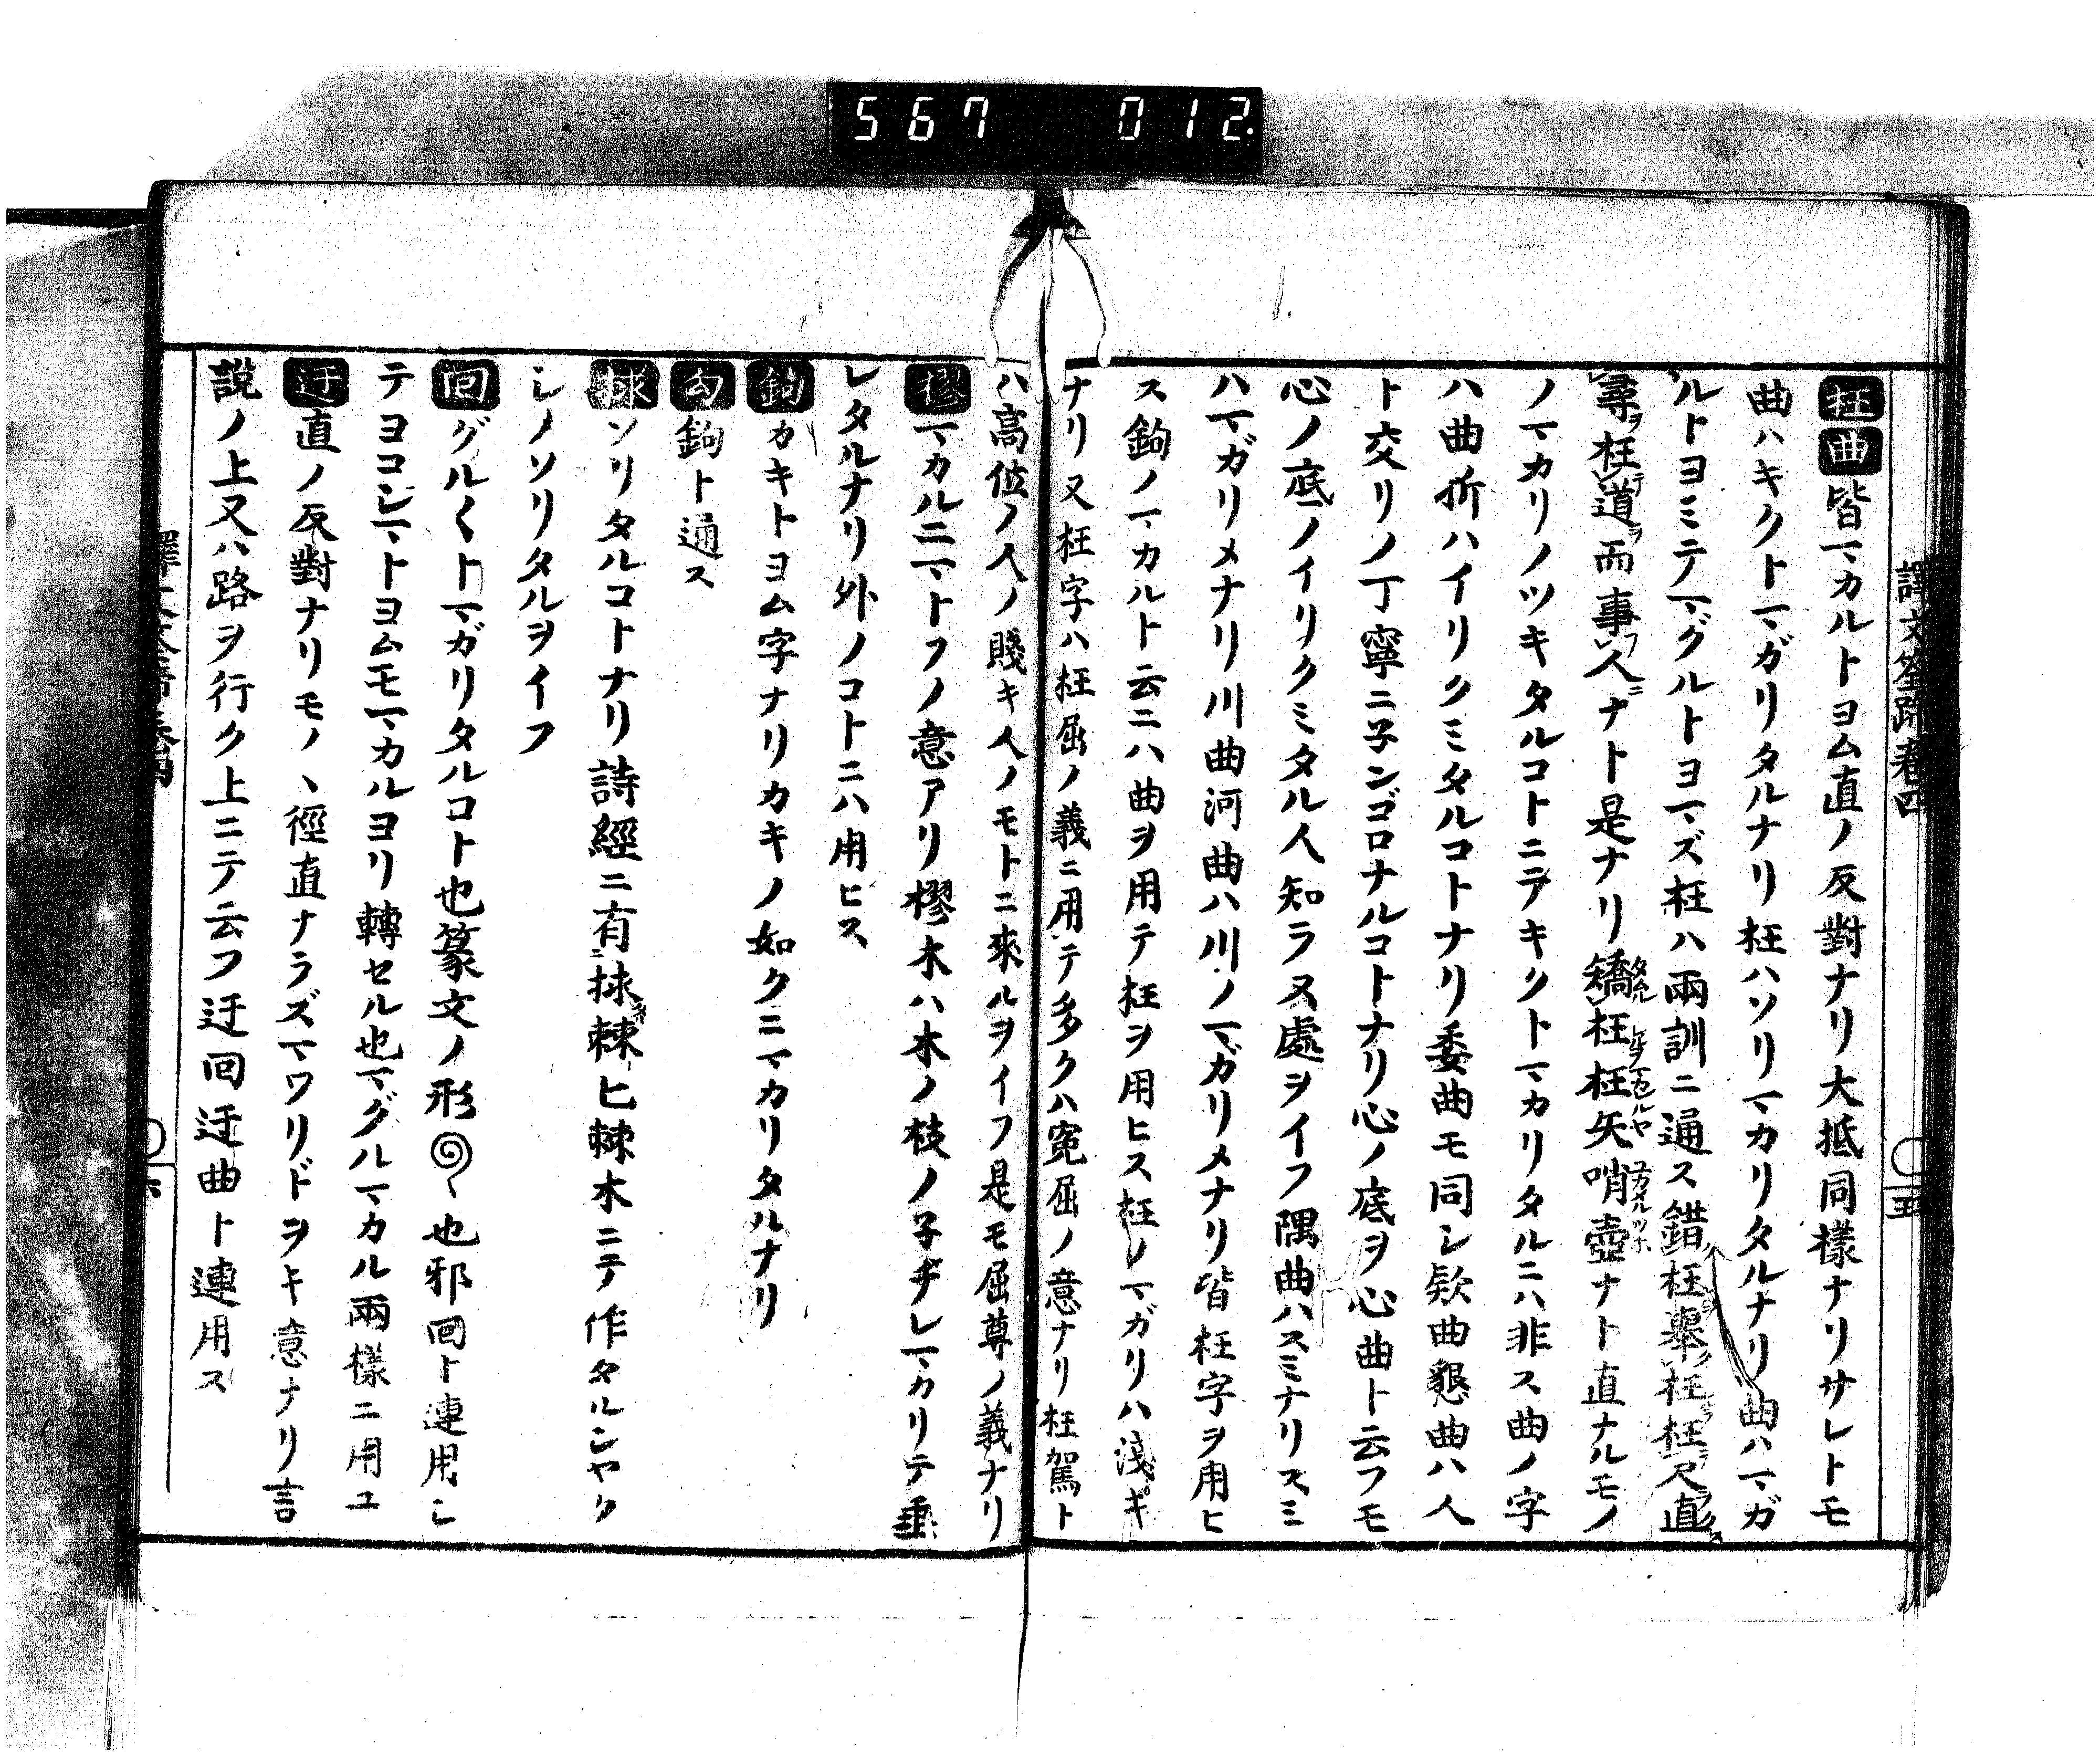 567 012.
譯文筌蹄卷四
五
枉曲皆マカルトヨム直ノ反對ナリ大抵同樣ナリサレトモ
曲ハキクトマガリタルナリ枉ハソリマカリタルナリ曲ハマガ
ルトヨミテマグルトヨマズ枉ハ兩訓ニ通ス錯枉舉枉枉尺直
尋枉道而事人ナト是ナリ矯枉枉矢哨壺ナト直ナルモノ
ノマカリノツキタルコトニテキクトマカリタルニハ非ス曲ノ字
ハ曲折ハイリクミタルコトナリ委曲モ同シ欵曲懇曲ハ人
ト交リノ丁寧ニ子ンゴロナルコトナリ心ノ底ヲ心曲ト云フモ
心ノ底ノイリクミタル人知ラヌ處ヲイフ隅曲ハスミナリスミ
ハマガリメナリ川曲河曲ハ川ノマガリメナリ皆枉字ヲ用ヒ
ス鉤ノマカルト云ニハ曲ヲ用テ枉ヲ用ヒス枉ノマガリハ淺キ
ナリ又枉字ハ枉屈ノ義ニ用テ多クハ寃屈ノ意ナリ枉駕ト
ハ高位ノ人ノ賤キ人ノモトニ來ルヲイフ是モ屈尊ノ義ナリ
樛マカルニマトフノ意アリ樛木ハ木ノ枝ノ子ヂレマカリテ垂
レタルナリ外ノコトニハ用ヒス
鉤カキトヨム字ナリカキノ如クニマカリタルナリ
勾鉤ト通ス
捄ソリタルコトナリ詩經ニ有捄棘匕棘木ニテ作タルシヤク
シノソリタルヲイフ
回グルくトマガリタルコト也篆文ノ形也邪回ト連用シ
テヨコシマトヨムモマカルヨリ轉セル也マグルマカル兩樣ニ用ユ
迂直ノ反對ナリモノヽ徑直ナラズマワリドヲキ意ナリ言
說ノ上又ハ路ヲ行ク上ニテ云フ迂回迂曲ト連用ス
六